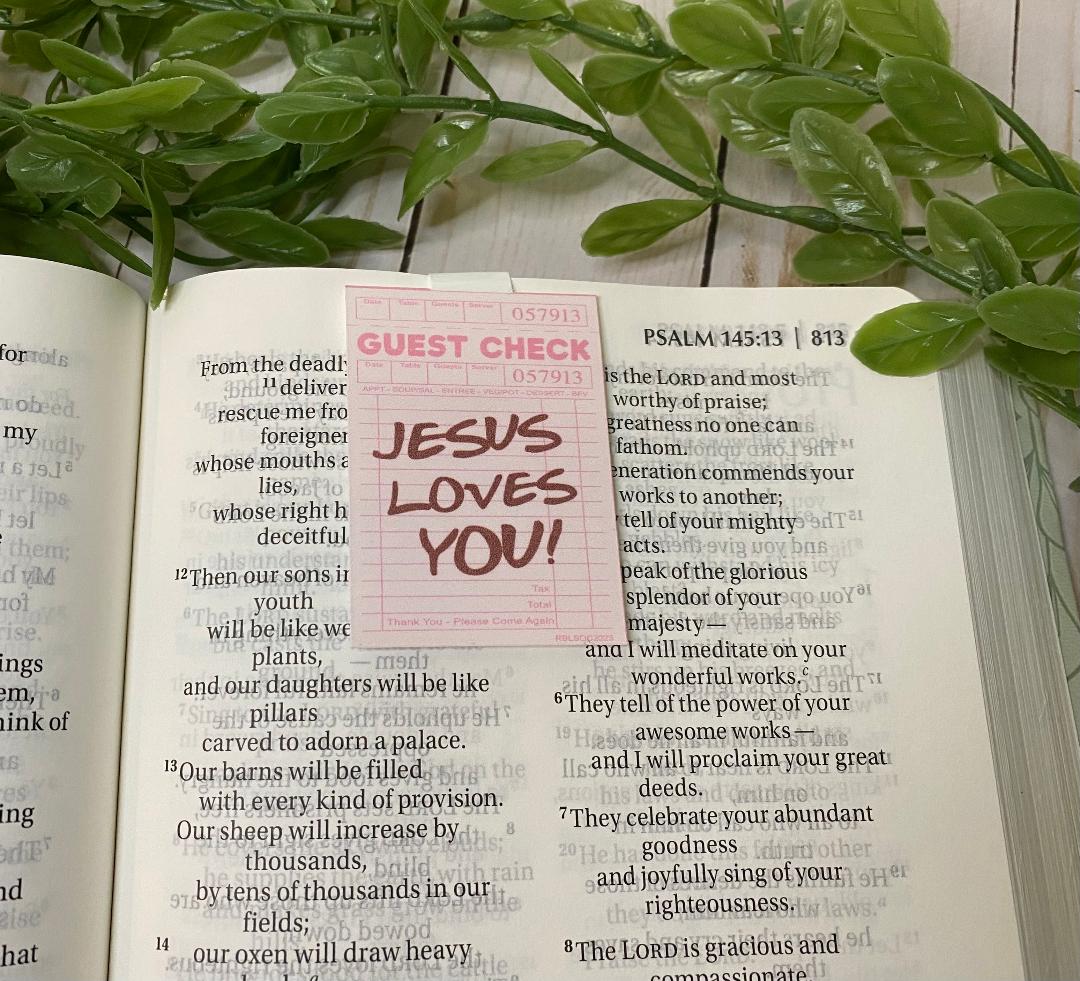 for
my
ings
em,
hink of
ing
nd
hat
From the deadly
11 deliver
rescue me fro
foreigner
whose mouths a
lies,
whose right h
deceitful
12 Then our sons in
youth
will be like we
plants,
and our daughters will be like
pillars
carved to adorn a palace.
13 Our barns will be filled
with every kind of provision.
Our sheep will increase by
thousands,
by tens of thousands in our
fields;
14 our oxen will draw heavy
Date Table Guests Server 057913
GUEST CHECK
Date Table Guests Server 057913
APPT - SOUP/SAL - ENTREE - VEG/POT - DESSERT - BEV
JESUS
LOVES
YOU!
Tax
Total
Thank You - Please Come Again
PSALM 145:13 | 813
is the LORD and most
worthy of praise;
greatness no one can
fathom.
eneration commends your
works to another;
tell of your mighty
acts.
peak of the glorious
splendor of your
majesty —
and I will meditate on your
wonderful works.c
6 They tell of the power of your
awesome works —
and I will proclaim your great
deeds.
7 They celebrate your abundant
goodness
and joyfully sing of your
righteousness.
8 The LORD is gracious and
compassionate,